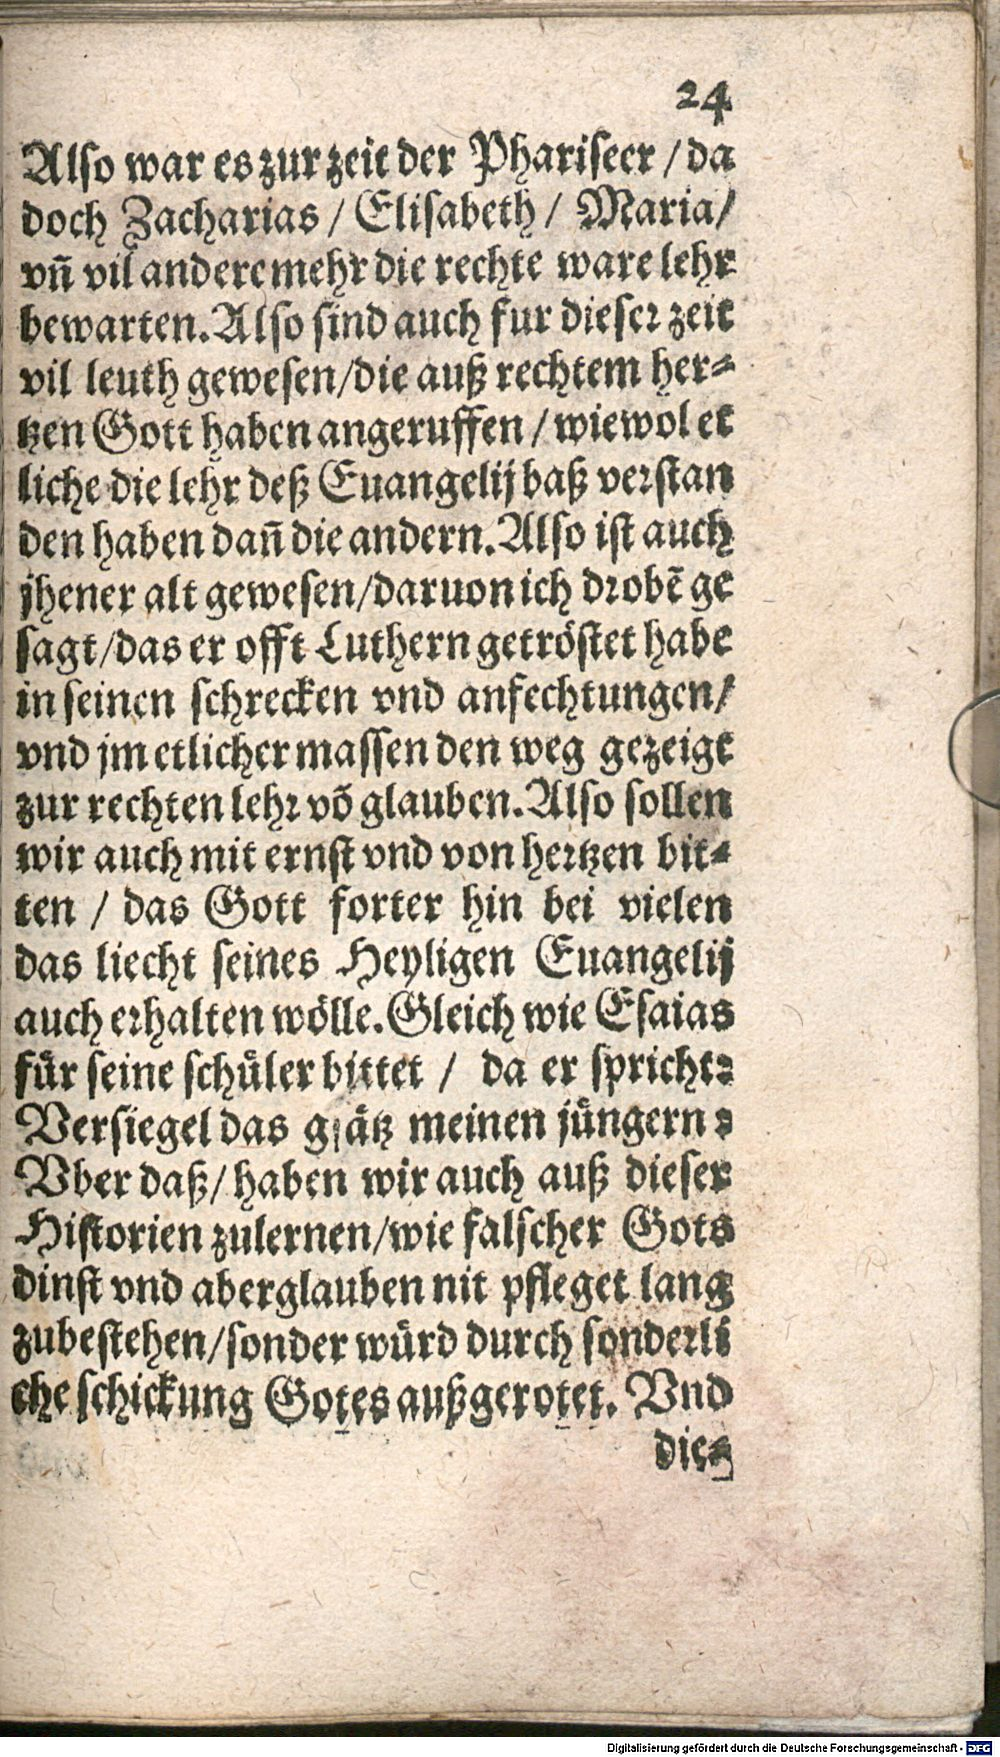 24
Also war es zur zeit der Phariseer / da
doch Zacharias / Elisabeth / Maria/
vñ vil andere mehr die rechte ware lehr
bewarten. Also sind auch fur dieser zeit
vil leuth gewesen/die auß rechtem her-
tzen Gott haben angeruffen / wiewol et
liche die lehr deß Euangelij baß verstan
den haben dañ die andern. Also ist auch
jhener alt gewesen/daruon ich drobẽ ge
sagt/das er offt Luthern getröstet habe
in seinen schrecken vnd anfechtungen/
vnd jm etlicher massen den weg gezeigt
zur rechten lehr võ glauben. Also sollen
wir auch mit ernst vnd von hertzen bit-
ten / das Gott forter hin bei vielen
das liecht seines Heyligen Euangelij
auch erhalten wölle. Gleich wie Esaias
für seine schüler bittet / da er spricht:
Versiegel das gsätz meinen jüngern:
Vber daß/ haben wir auch auß dieser
Historien zulernen/wie falscher Gots
dinst vnd aberglauben nit pfleget lang
zubestehen/sonder würd durch sonderli
che schickung Gotes außgerotet. Vnd
die-
Digitalisierung gefördert durch die Deutsche Forschungsgemeinschaft - DFG